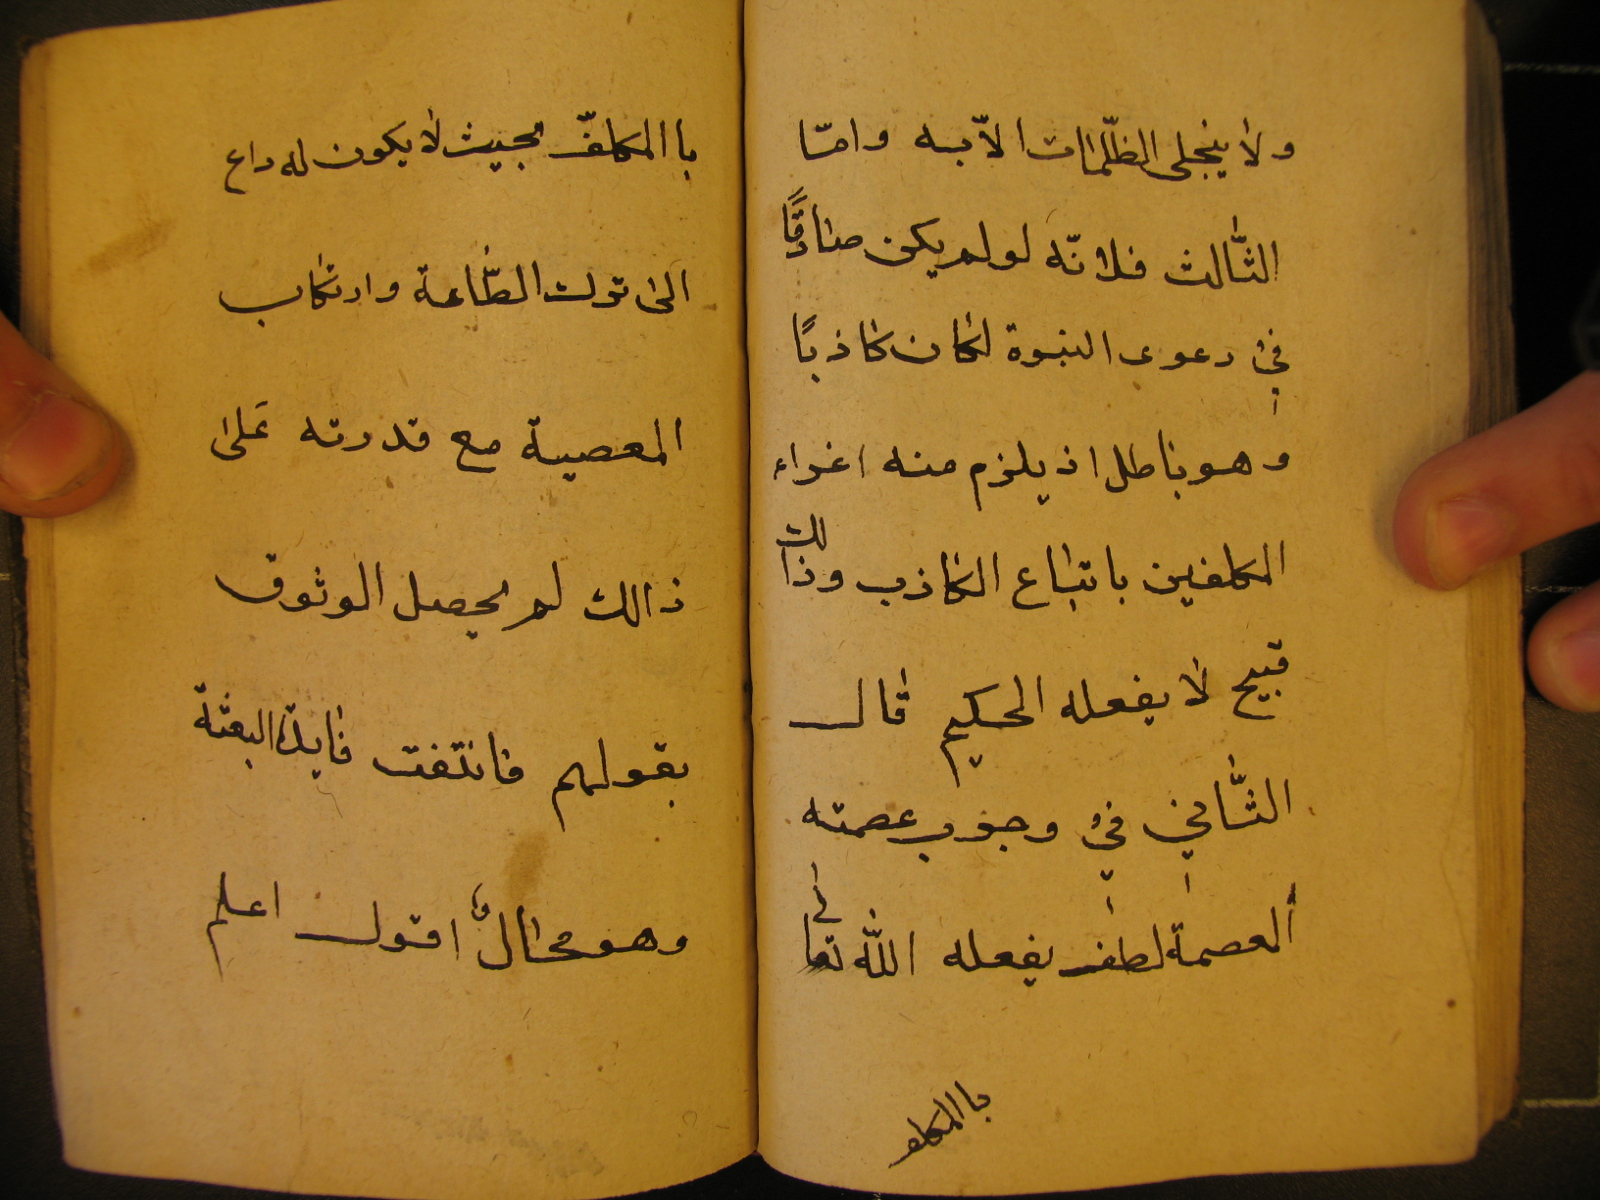 ولا ينجلى الظّلمات الاّ به وامّا
الثّالث فلانّه لو لم يكن صادقًا
في دعوى النبوة لكان كاذبًا
وهو باطل اذ يلزم منه اغراء
المكلفين باتباع الكاذب وذالك
قبيح لا يفعله الحكيم قال
الثّاني في وجوب عصمته
العصمة لطف يفعله اللّه تعالى
باالمكلف
باالمكلفّ بحيث لا يكون له داع
الى ترك الطّاعة وارتكاب
المعصية مع قدرته على
ذالك لم يحصل الوثوق
بقولهم فانتفت فايدة البعثة
وهو محال اقول اعلم